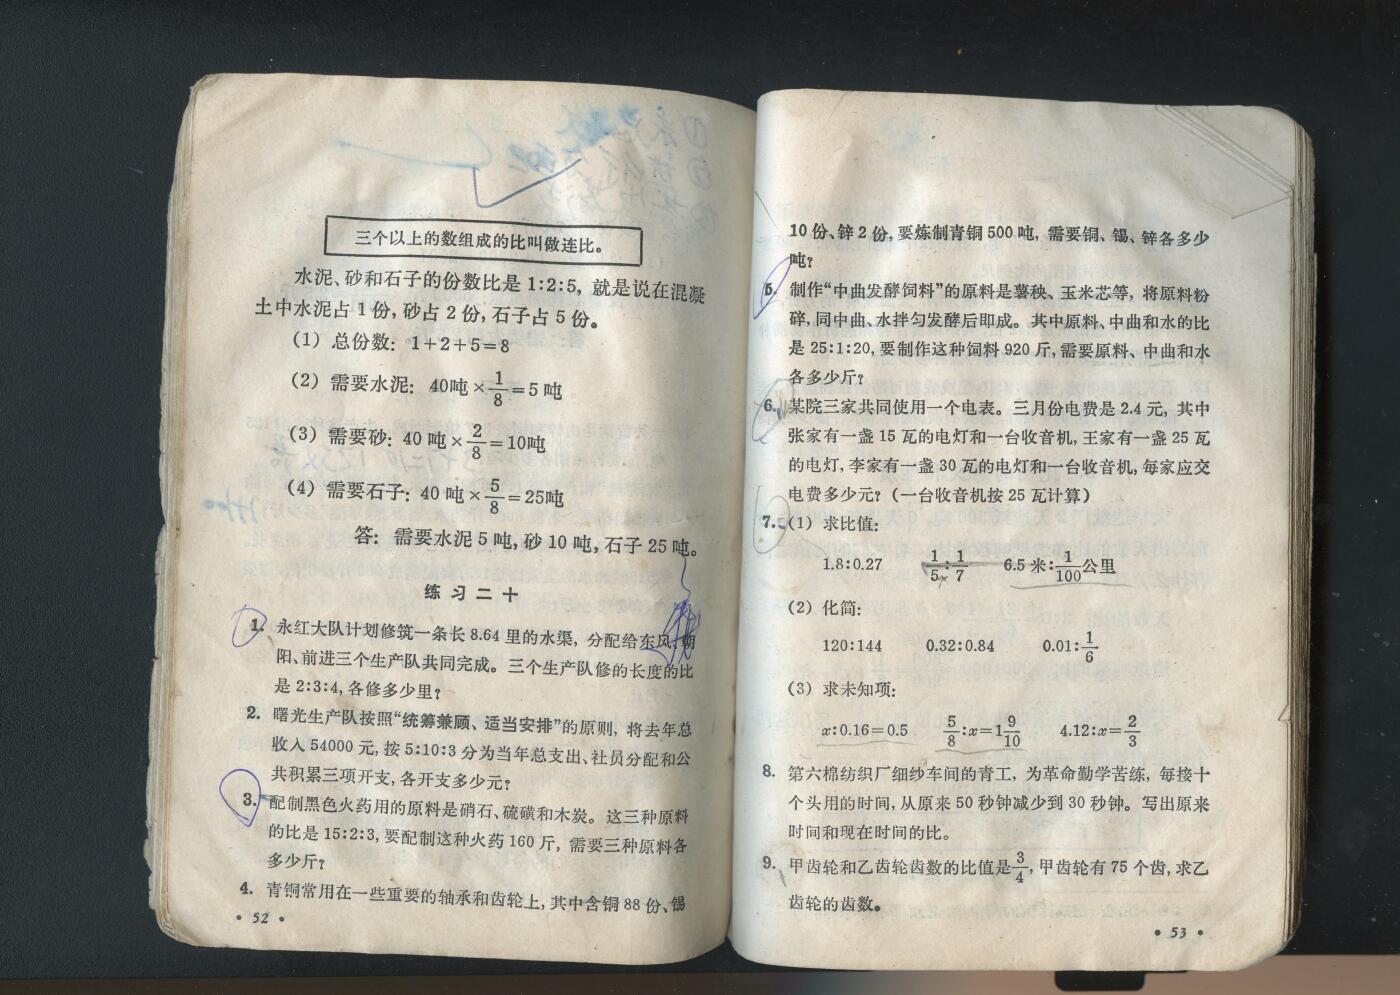 三个以上的数组成的比叫做连比。
水泥、砂和石子的份数比是1:2:5，就是说在混凝
土中水泥占1份，砂占2份，石子占5份。
（1）总份数：1＋2＋5＝8
（2）需要水泥：40吨×1/8＝5吨
（3）需要砂：40吨×2/8＝10吨
（4）需要石子：40吨×5/8＝25吨
答：需要水泥5吨，砂10吨，石子25吨。
练习二十
1. 永红大队计划修筑一条长8.64里的水渠，分配给东风、朝
阳、前进三个生产队共同完成。三个生产队修的长度的比
是2:3:4，各修多少里？
2. 曙光生产队按照“统筹兼顾、适当安排”的原则，将去年总
收入54000元，按5:10:3分为当年总支出、社员分配和公
共积累三项开支，各开支多少元？
3. 配制黑色火药用的原料是硝石、硫磺和木炭。这三种原料
的比是15:2:3，要配制这种火药160斤，需要三种原料各
多少斤？
4. 青铜常用在一些重要的轴承和齿轮上，其中含铜88份、锡
• 52 •
10份、锌2份，要炼制青铜500吨，需要铜、锡、锌各多少
吨？
5. 制作“中曲发酵饲料”的原料是薯秧、玉米芯等，将原料粉
碎，同中曲、水拌匀发酵后即成。其中原料、中曲和水的比
是25:1:20，要制作这种饲料920斤，需要原料、中曲和水
各多少斤？
6. 某院三家共同使用一个电表。三月份电费是2.4元，其中
张家有一盏15瓦的电灯和一台收音机，王家有一盏25瓦
的电灯，李家有一盏30瓦的电灯和一台收音机，每家应交
电费多少元？（一台收音机按25瓦计算）
7. （1）求比值：
1.8:0.27 1/5:1/7 6.5米:1/100公里
（2）化简：
120:144 0.32:0.84 0.01:1/6
（3）求未知项：
x:0.16＝0.5 5/8:x＝1 9/10 4.12:x＝2/3
8. 第六棉纺织厂细纱车间的青工，为革命勤学苦练，每接十
个头用的时间，从原来50秒钟减少到30秒钟。写出原来
时间和现在时间的比。
9. 甲齿轮和乙齿轮齿数的比值是3/4，甲齿轮有75个齿，求乙
齿轮的齿数。
• 53 •